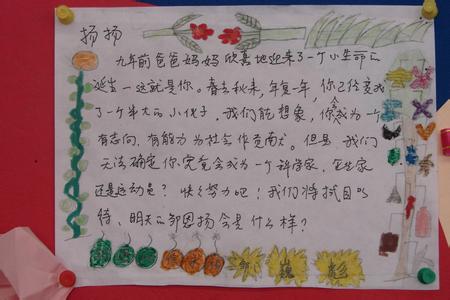 扬扬
九年前爸爸妈妈欣喜地迎来了一个小生命的
诞生—这就是你。春去秋来，年复一年，你已经变成
了一个半大的小伙子，我们能想象，你会成为一个
有志向，有能力为社会作贡献的人。但是，我们
无法确定你究竟会成为一个科学家，艺术家
还是运动员？快快努力吧！我们将拭目以
待，明天的邹恩扬会是什么样？